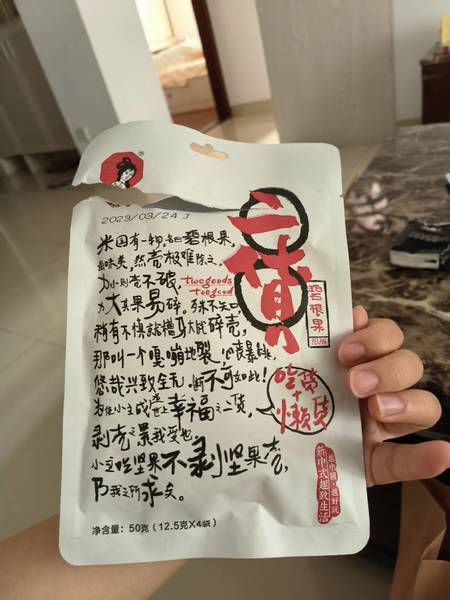 2023/03/24 J
二货
碧根果
米国有一物,名曰碧根果,
美味矣,然壳极难除之,
力小则壳不破,
力大果易碎。殊不知
twogoods
toogood
稍有不慎就撞了大的碎壳,
那叫一个嘎嘣地裂,
悠哉兴致全无,
为使小主成世上幸福之二货,
吃货
+
懒货
剥壳之累我受也,
小主吃坚果不剥坚果壳,
乃我之所求矣。
新中式趣致生活
净含量:50克(12.5克X4袋)